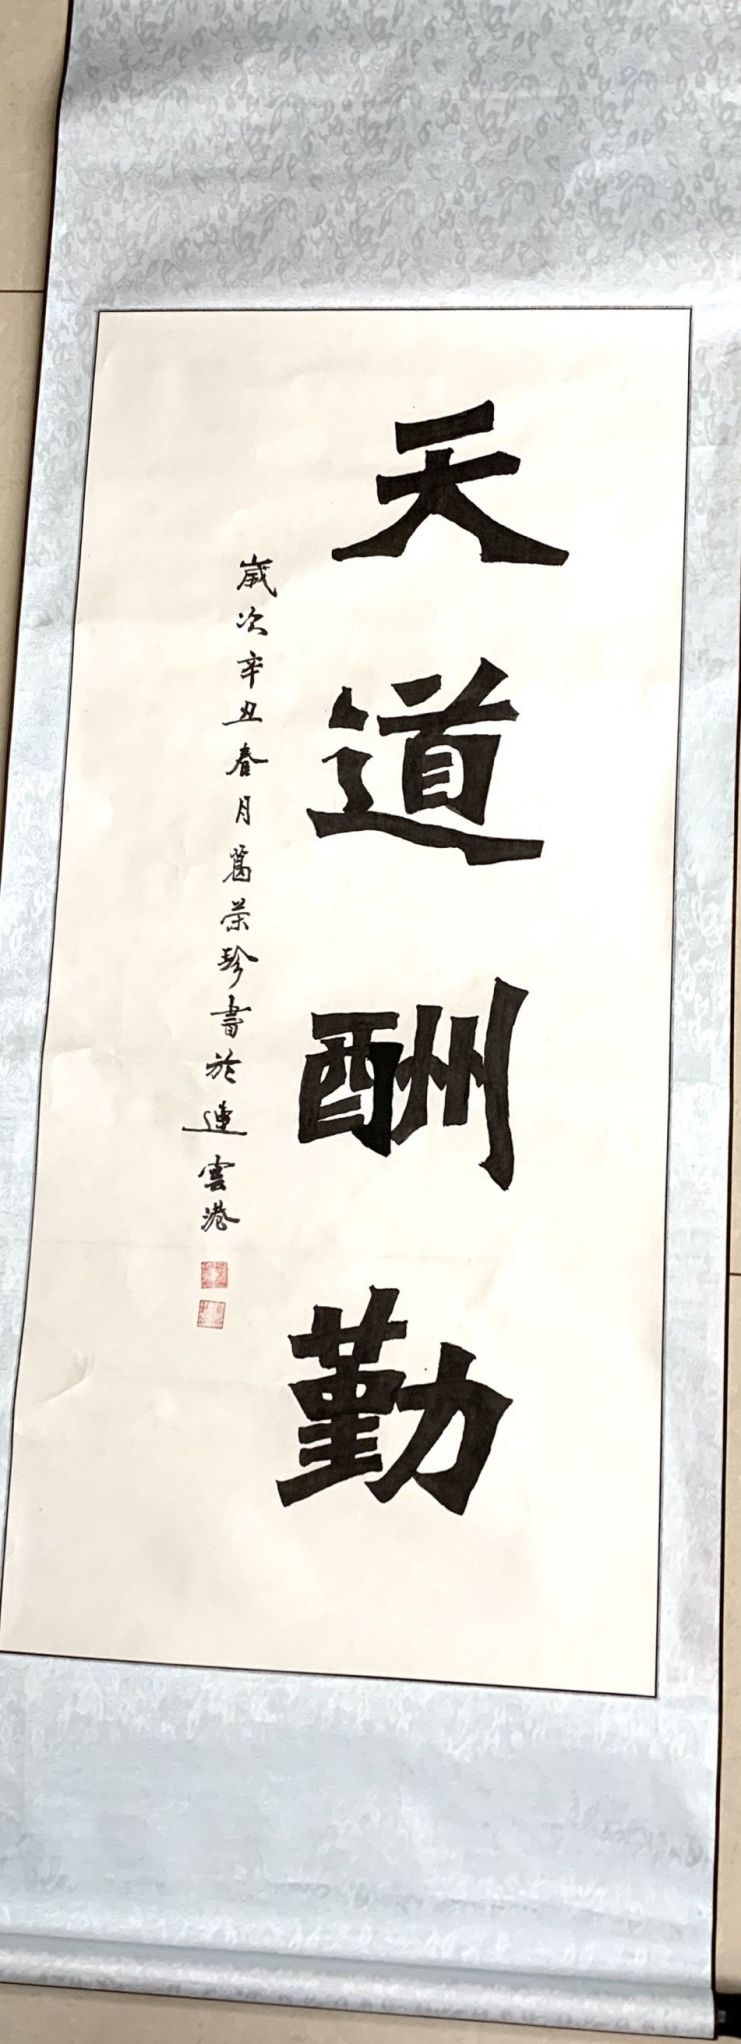 天道酬勤
歲次辛丑春月葛荣珍書於連雲港